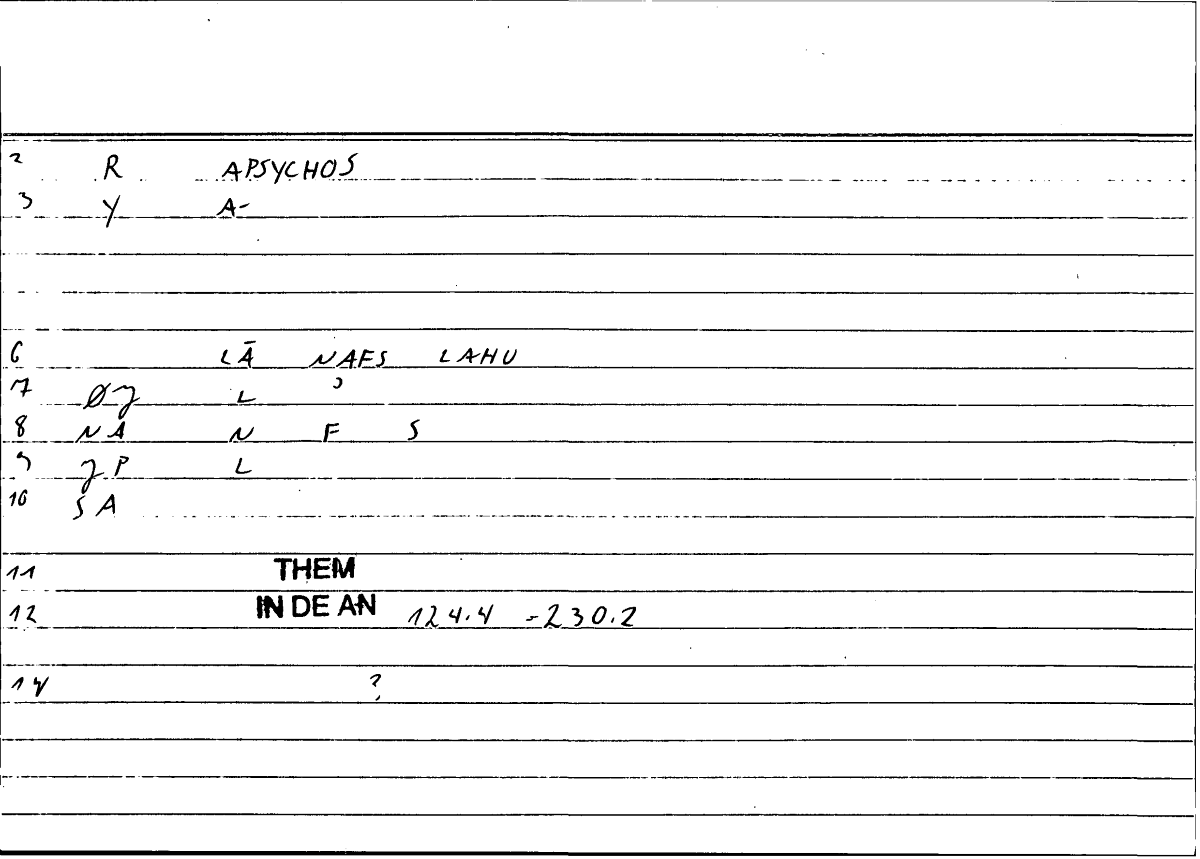 2 R APSYCHOS
3 Y A-
6 LĀ NAFS LAHU
7 L ʾ
8 NA N F S
9 P L
10 SA
11 THEM
12 IN DE AN 124.4 -230.2
14 ?